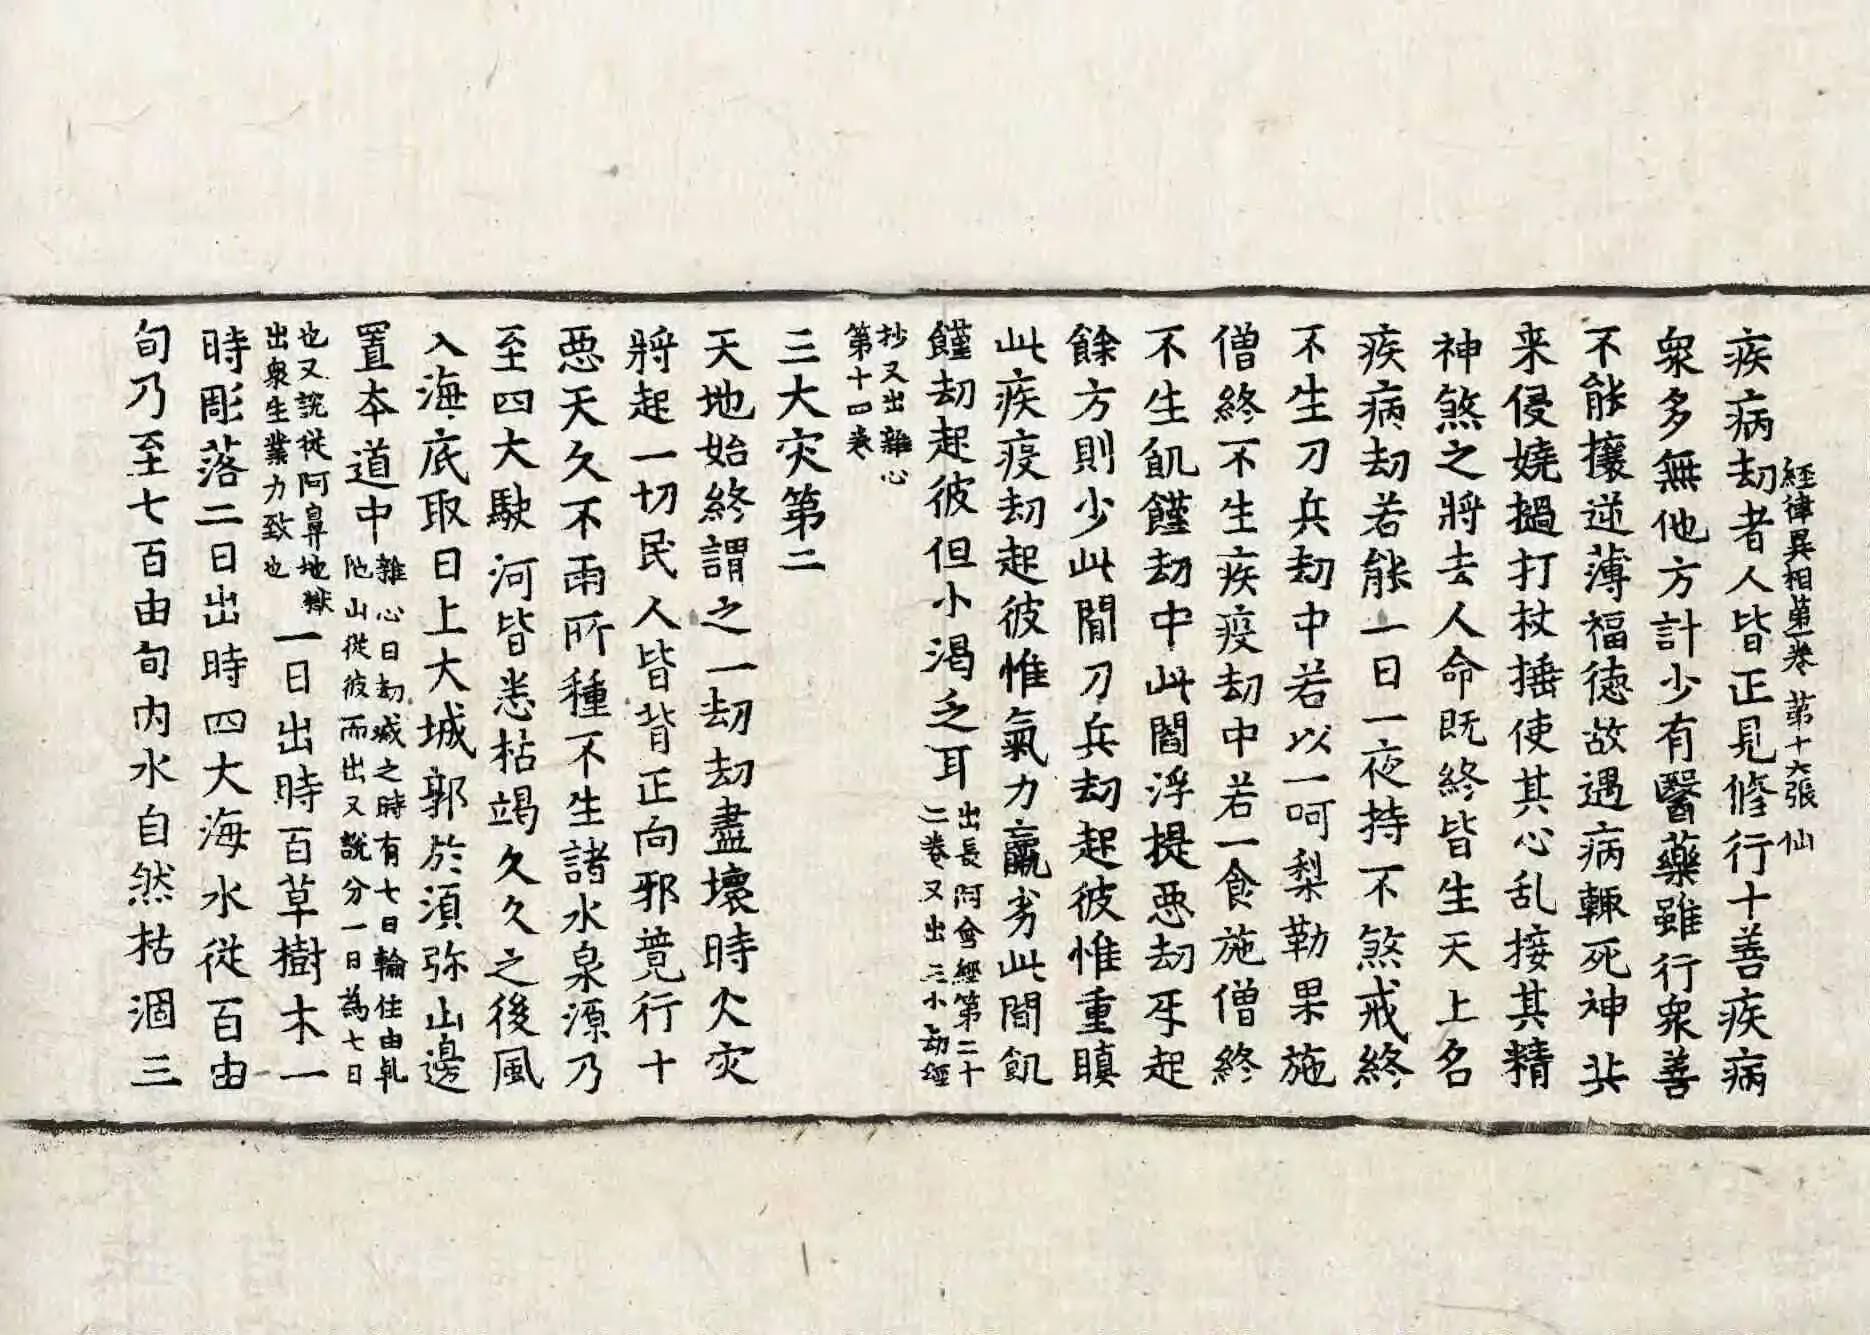 經律異相第一卷 第十六張 仙
疾病劫者人皆正見修行十善疾病
衆多無他方計少有醫藥雖行衆善
不能攘逆薄福德故遇病輙死神共
来侵嬈撾打杖捶使其心乱接其精
神煞之將去人命既終皆生天上名
疾病劫若能一日一夜持不煞戒終
不生刀兵劫中若以一呵梨勒果施
僧終不生疾疫劫中若一食施僧終
不生飢饉劫中此閻浮提惡劫牙起
餘方則少此間刀兵劫起彼惟重瞋
此疾疫劫起彼惟氣力羸劣此間飢
饉劫起彼但小渴乏耳出長阿含經第二十
二卷又出三小劫經
抄又出雜心
第十四卷
三大灾第二
天地始終謂之一劫劫盡壞時火灾
將起一切民人皆背正向邪竟行十
惡天久不雨所種不生諸水泉源乃
至四大駛河皆悉枯竭久久之後風
入海底取日上大城郭於須弥山邊
置本道中雜心曰劫減之時有七日輪住由乹
陁山從彼而出又說分一日為七日
也又說從阿鼻地獄
出衆生業力致也一日出時百草樹木一
時彫落二日出時四大海水從百由
旬乃至七百由旬内水自然枯涸三